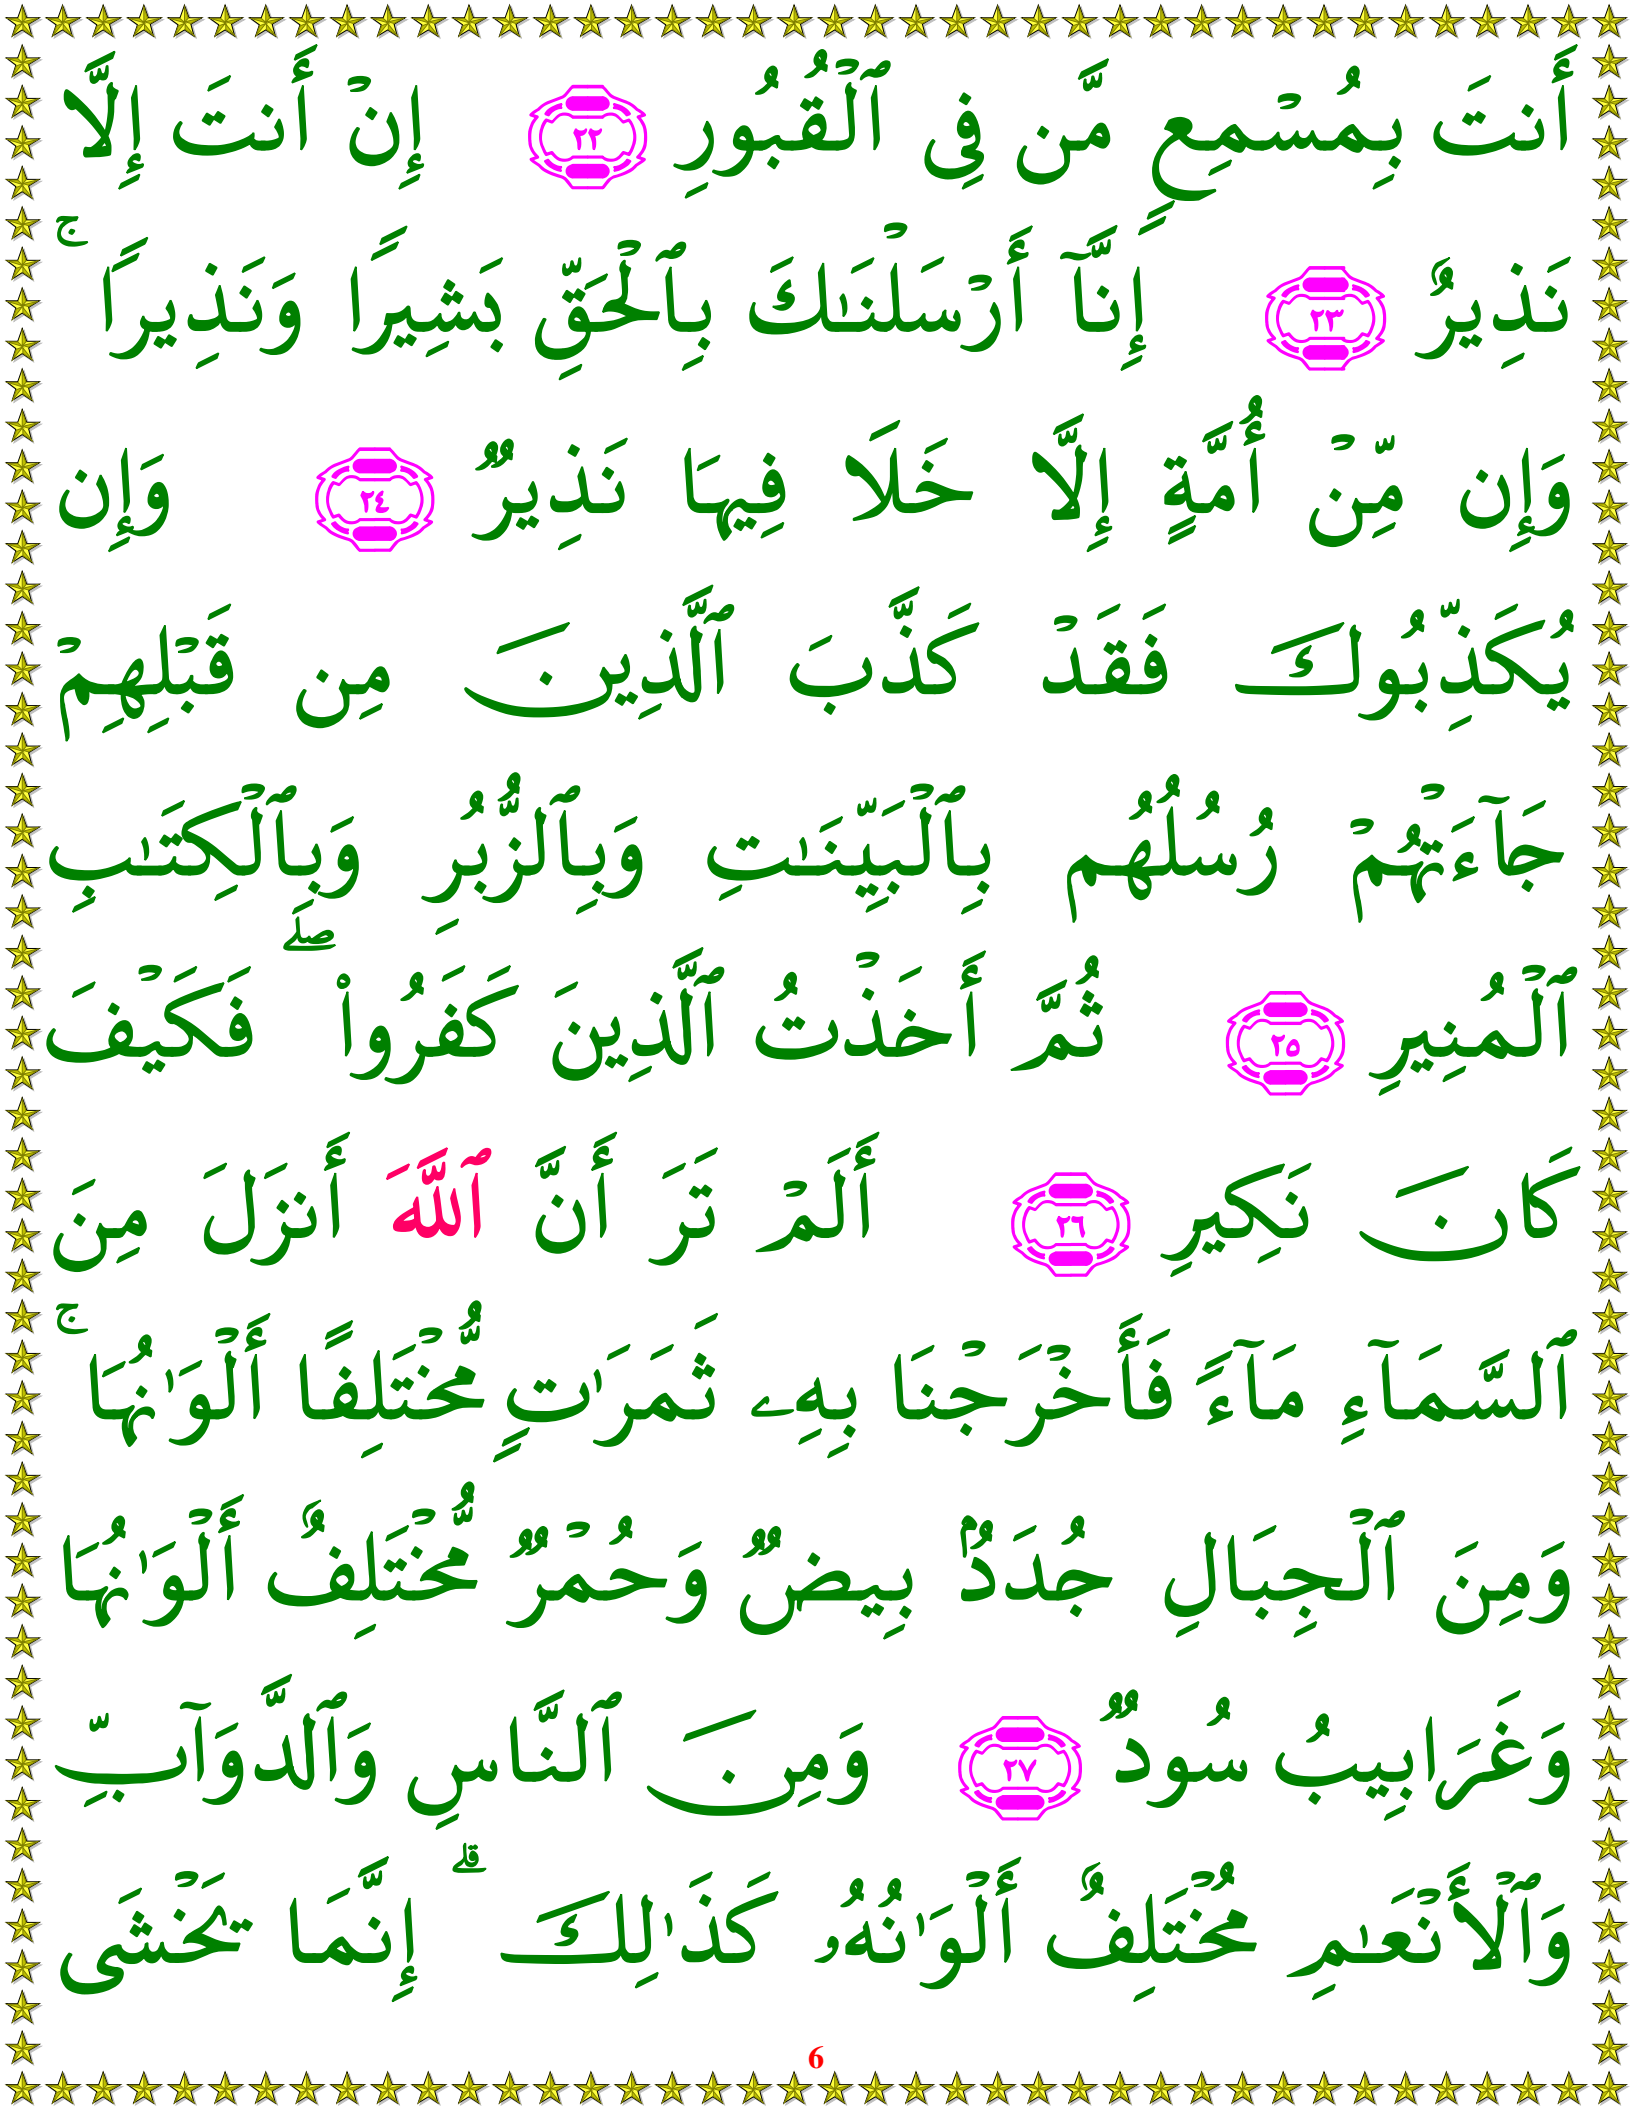 أَنتَ بِمُسْمِعٍ مَّن فِى ٱلْقُبُورِ ٢٢ إِنْ أَنتَ إِلَّا
نَذِيرٌ ٢٣ إِنَّآ أَرْسَلْنَـٰكَ بِٱلْحَقِّ بَشِيرًا وَنَذِيرًا ۚ
وَإِن مِّنْ أُمَّةٍ إِلَّا خَلَا فِيهَا نَذِيرٌ ٢٤ وَإِن
يُكَذِّبُوكَ فَقَدْ كَذَّبَ ٱلَّذِينَ مِن قَبْلِهِمْ
جَآءَتْهُمْ رُسُلُهُم بِٱلْبَيِّنَـٰتِ وَبِٱلزُّبُرِ وَبِٱلْكِتَـٰبِ
ٱلْمُنِيرِ ٢٥ ثُمَّ أَخَذْتُ ٱلَّذِينَ كَفَرُوا۟ ۖ فَكَيْفَ
كَانَ نَكِيرِ ٢٦ أَلَمْ تَرَ أَنَّ ٱللَّهَ أَنزَلَ مِنَ
ٱلسَّمَآءِ مَآءً فَأَخْرَجْنَا بِهِۦ ثَمَرَٰتٍ مُّخْتَلِفًا أَلْوَٰنُهَا ۚ
وَمِنَ ٱلْجِبَالِ جُدَدٌۢ بِيضٌ وَحُمْرٌ مُّخْتَلِفٌ أَلْوَٰنُهَا
وَغَرَابِيبُ سُودٌ ٢٧ وَمِنَ ٱلنَّاسِ وَٱلدَّوَآبِّ
وَٱلْأَنْعَـٰمِ مُخْتَلِفٌ أَلْوَٰنُهُۥ كَذَٰلِكَ ۗ إِنَّمَا يَخْشَى
6